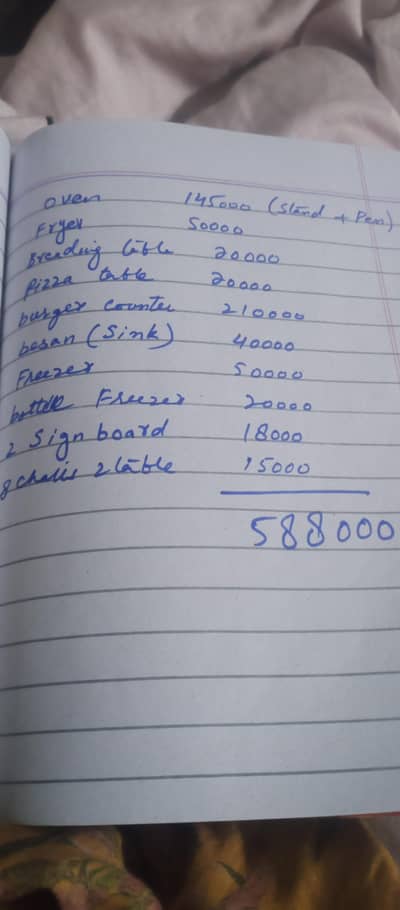 oven 145000 (Stand + Pan)
Fryer 50000
Breading table 20000
Pizza table 20000
burger counter 210000
besan (Sink) 40000
Freezer 50000
bottle Freezer 20000
2 Sign board 18000
8 chairs 2 table 15000
588000